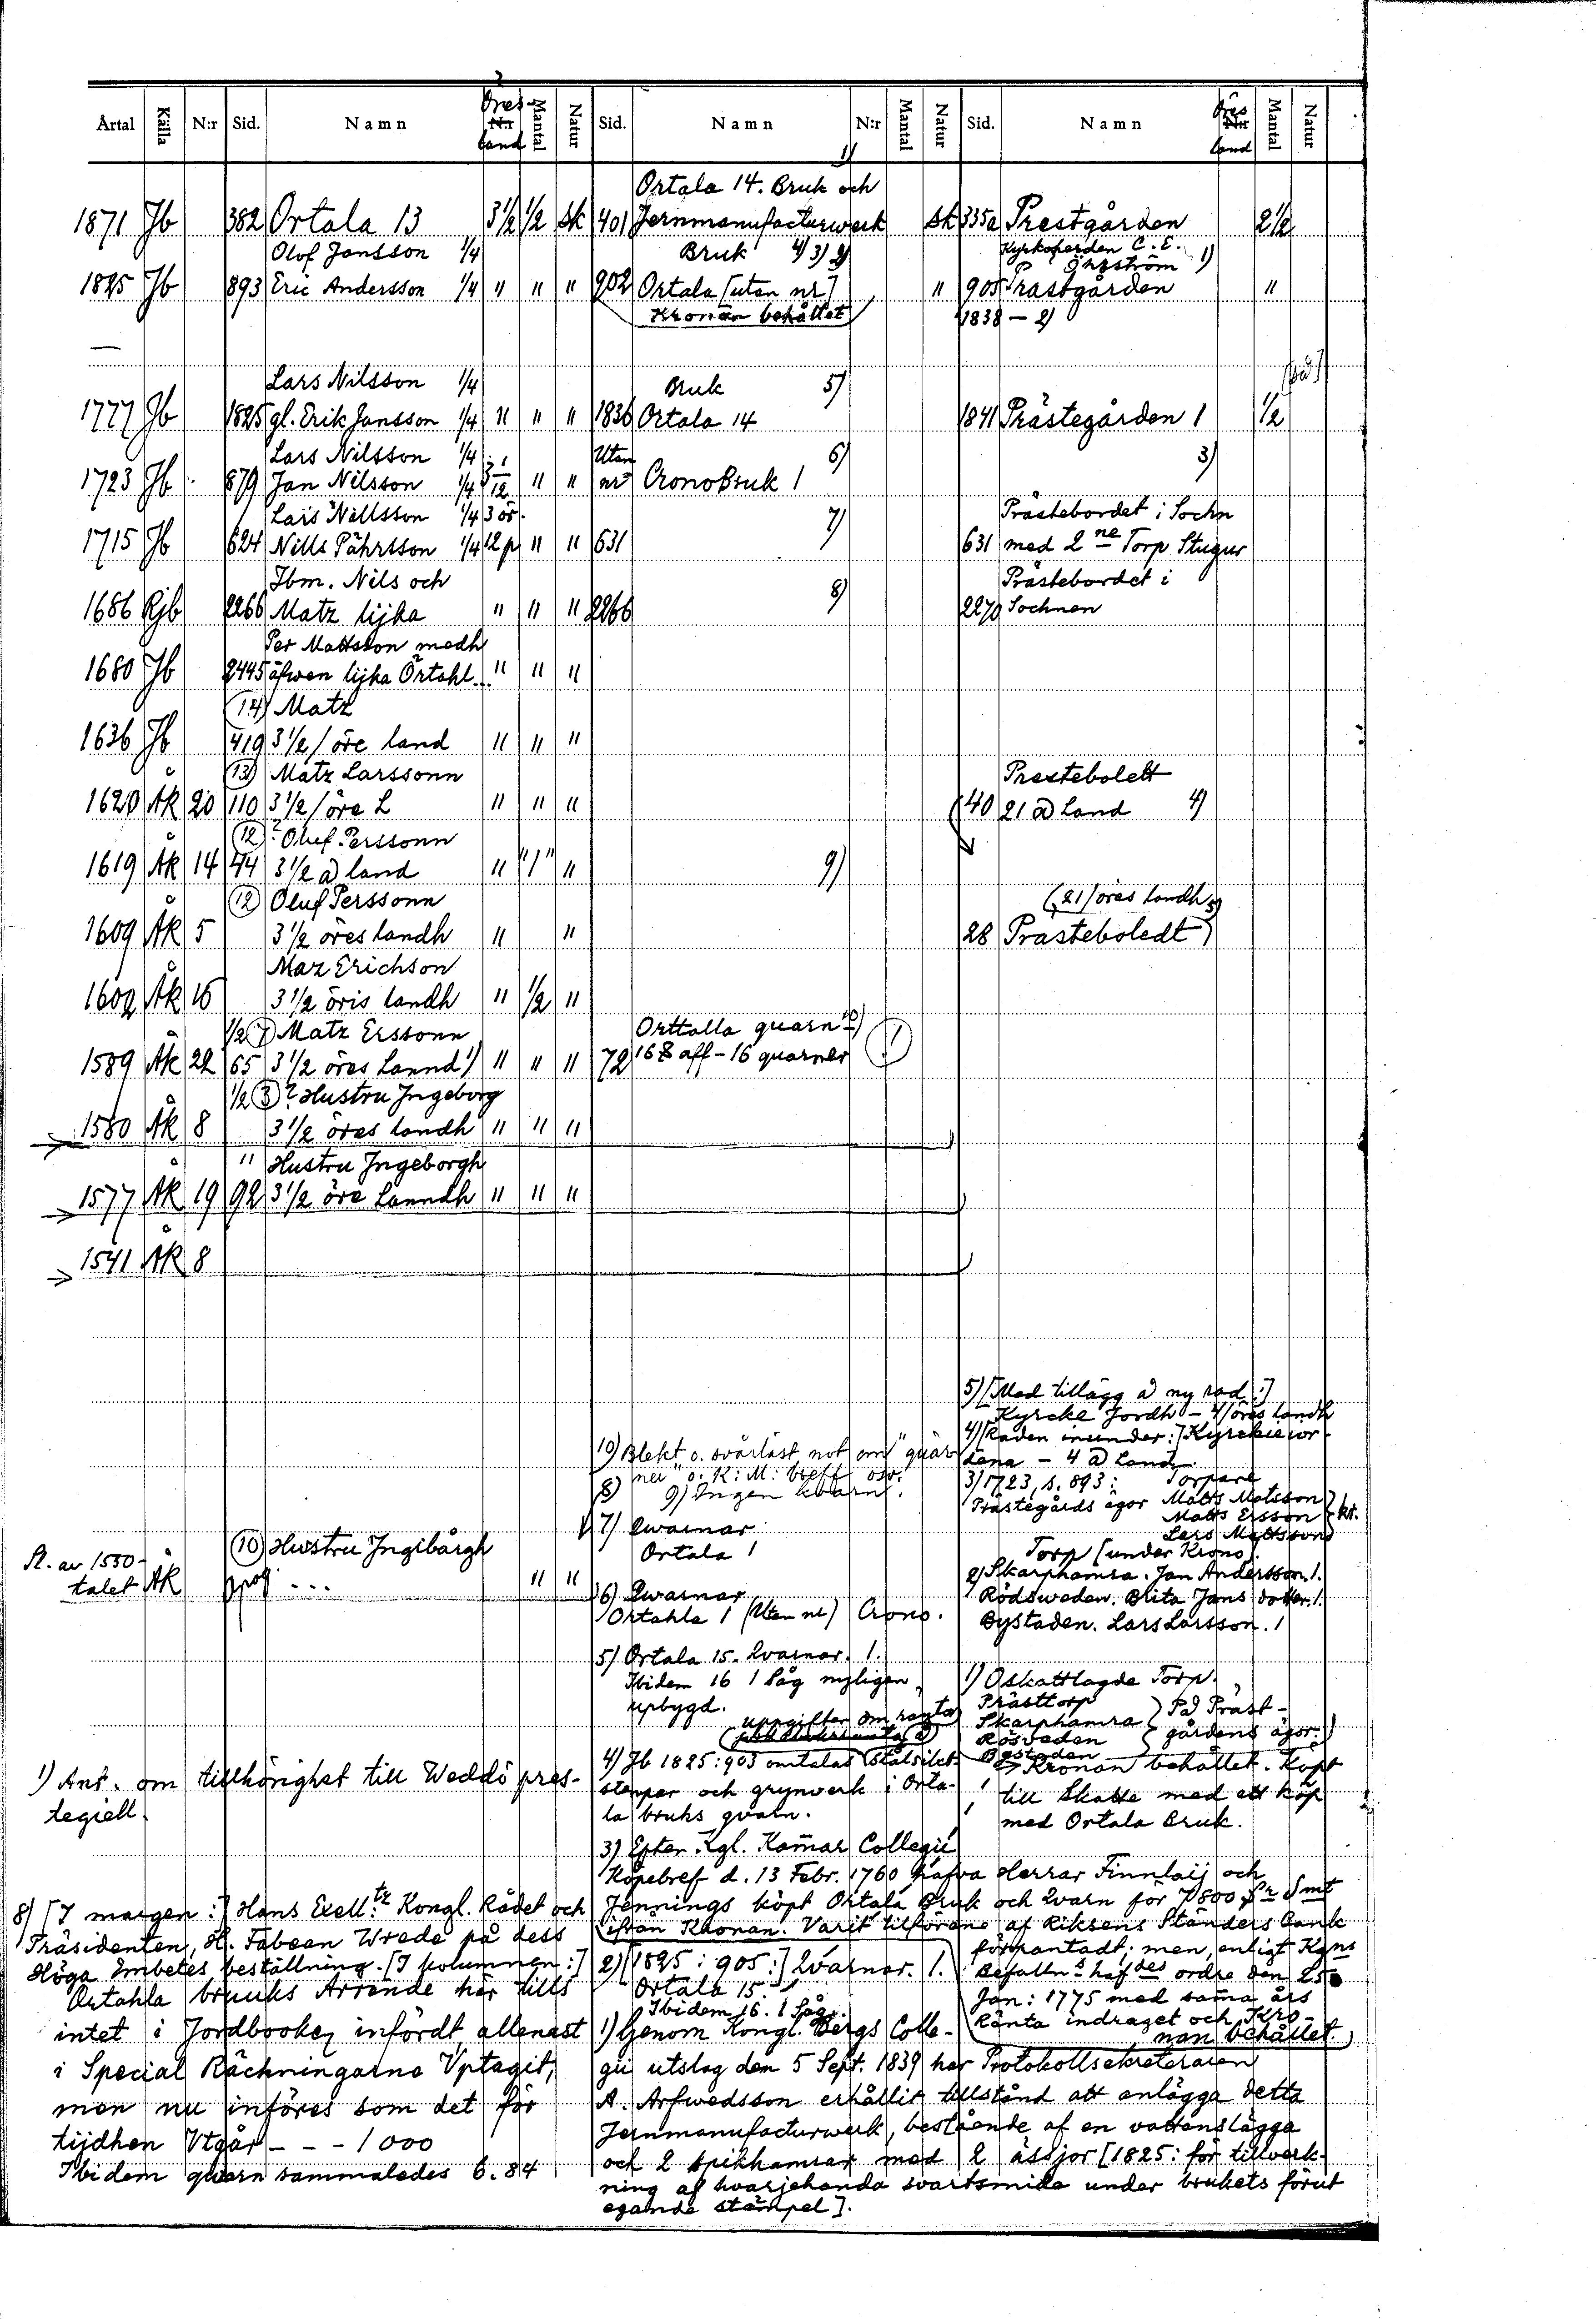 Årtal Källa N:r Sid. Namn Öres land Mantal Natur Sid. Namn N:r Mantal Natur Sid. Namn Öres land Mantal Natur
1)
Ortala 14. Bruk och
1871 Jb 382 Ortala 13 3 1/2 1/2 Sk 401 Jernmanufacturwerk Sk 335a Prestgården 2 1/2
Olof Jansson 1/4 Bruk 4) 3) 2) Kyrkoherden C. E.
Öhrström 1)
1825 Jb 893 Eric Andersson 1/4 " " " 902 Ortala [utan nr] " 905 Prästgården "
Kronan behållet 1838 – 2)
Lars Nilsson 1/4 Bruk 5)
1777 Jb 1825 gl. Erik Jansson 1/4 " " " 1836 Ortala 14 1841 Prästegården 1 1/2
Lars Nilsson 1/4 Utan 6) 3)
1723 Jb 879 Jan Nilsson 1/4 3 1/12 " " nr Cronobruk 1
Lars Nillsson 1/4 3 ör. 7) Prästebordet i Sochn
1715 Jb 624 Nills Påhrsson 1/4 12 p " " 631 631 med 2ne Torp Stugur
Ibm. Nils och 8) Prästebordet i
1686 Rjb 2266 Matz lijka " " " 2266 2270 Sochnen
Per Mattsson medh
1680 Jb 2445 äfwen lijka Örtahl. " " "
(14) Matz
1636 Jb 419 3 1/2 / öre land " " "
(13) Matz Larssonn Prestebolett
1620 Åk 20 110 3 1/2 / öre L " " " 40 21 a) Land 4)
(12)? Oluf Perssonn
1619 Åk 14 44 3 1/2 a) land " "1" " 9)
(12) Oluf Perssonn (21/öres landh 5)
1609 Åk 5 3 1/2 öres landh " " 28 Prasteboledt
Maz Erichson
1602 Åk 16 3 1/2 öris landh " 1/2 "
1/2 (7) Matz Erssonn Orttalla quarn 10)
1589 Åk 22 65 3 1/2 öres Lannd 1) " " " 72 168 aff – 16 quarner
1/2 (3)? Hustru Ingeborg
1580 Åk 8 3 1/2 öres landh " " "
" Hustru Ingeborgh
1577 Åk 19 92 3 1/2 öre Lanndh " " "
1541 Åk 8
5) [Med tillägg a) ny rad:]
Kyrcke Jordh – 4/öres landh
4) [Raden inunder:] Kyrckieior
10) Blekt o. svårläst not om "quar dena – 4 a) Land
ner" o. K: M: breff osv. 3) 1723, s. 893: Torpare
8) 9) Ingen kvarn. Prästegårds ägor Matts Matsson
Matts Ersson kr.
7) Qwarnar Lars Mattsson
Ortala 1 Torp [under Krono]
(10) Hustru Ingibårgh
Sl. av 1550- talet Åk " " 2) Skarphamra. Jan Andersson. 1.
6) Qwarnar Rödsweden. Brita Jans dotter. 1.
Ortahla 1 (Utan nr) Crono. Bystaden. Lars Larsson. 1
5) Ortala 15. Qvarnar. 1.
Ibidem 16 1 Såg nyligen 1) Oskattlagde Torp.
upbygd. Prästtorp
uppgifter om ränta Skarphamra På Präst-
Rösveden gårdens ägor.
4) Jb 1825: 903 omtalas Bystaden
2) Kronan behållet. Köpt
stenpar och grynverk i Orta- till Skatte med ett köp
la bruks qvarn. med Ortala Bruk.
1) Ant. om tillhörighet till Weddö pres-
tegiell.
3) Efter Kgl. Kamar Collegii
Köpebref d. 13 Febr. 1760 hafva Herrar Finnlaij och
Jennings köpt Ortala Bruk och Qvarn för 7800 Dr Smt
ifrån Kronan. Varit tilförene af Riksens Ständers Bank
förpantadt; men, enligt Kgns
Befalln:s haf des ordre den 25
Jan: 1775 med sama års
Ränta indraget och Kro-
nan behållet.
2) [1825: 905:] Qvarnar. 1.
Ortala 15.
Ibidem 16. 1 Såg.
1) Genom Kongl. Bergs Colle-
gii utslag den 5 Sept. 1839 har Protokollsekreteraren
A. Arfwedsson erhållit tillstånd att anlägga detta
Jernmanufacturwerk, bestående af en vattenslägga
och 2 spikhamrar med 2 ässjor [1825: för tillverk-
ning af hvarjehanda svartsmide under brukets förut
egande stämpel].
8) [I margen:] Hans Excell:tz Kongl. Rådet och
Präsidenten, H. Fabean Wrede på dess
Höga Embetes beställning. [I kolumnen:]
Ortahla bruuks Arrende här tills
intet i Jordbooken infördt, allenast
i Special Räckningarne Vptagit,
men nu införes som det för
tijdhen Vtgår – – – 1000
Ibidem qwarn sammaledes 6. 84